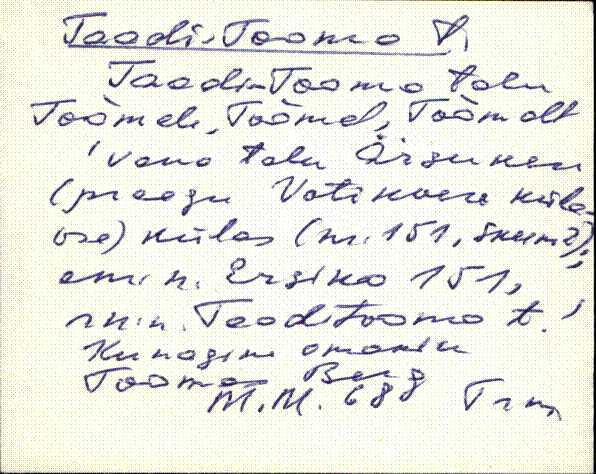 Taadi-Tooma t.
Taadi-Tooma talu
Toòmele, Toòmel, Toòmelt
vana talu Ärsuneu
(praegu Votikvere küla
ose) külas (nr. 151,
em. n. Ersiko 151,
rhv.n. Taaditooma t.
Kunagine omaniku
Tooma Berg
M.M. 688 Trm